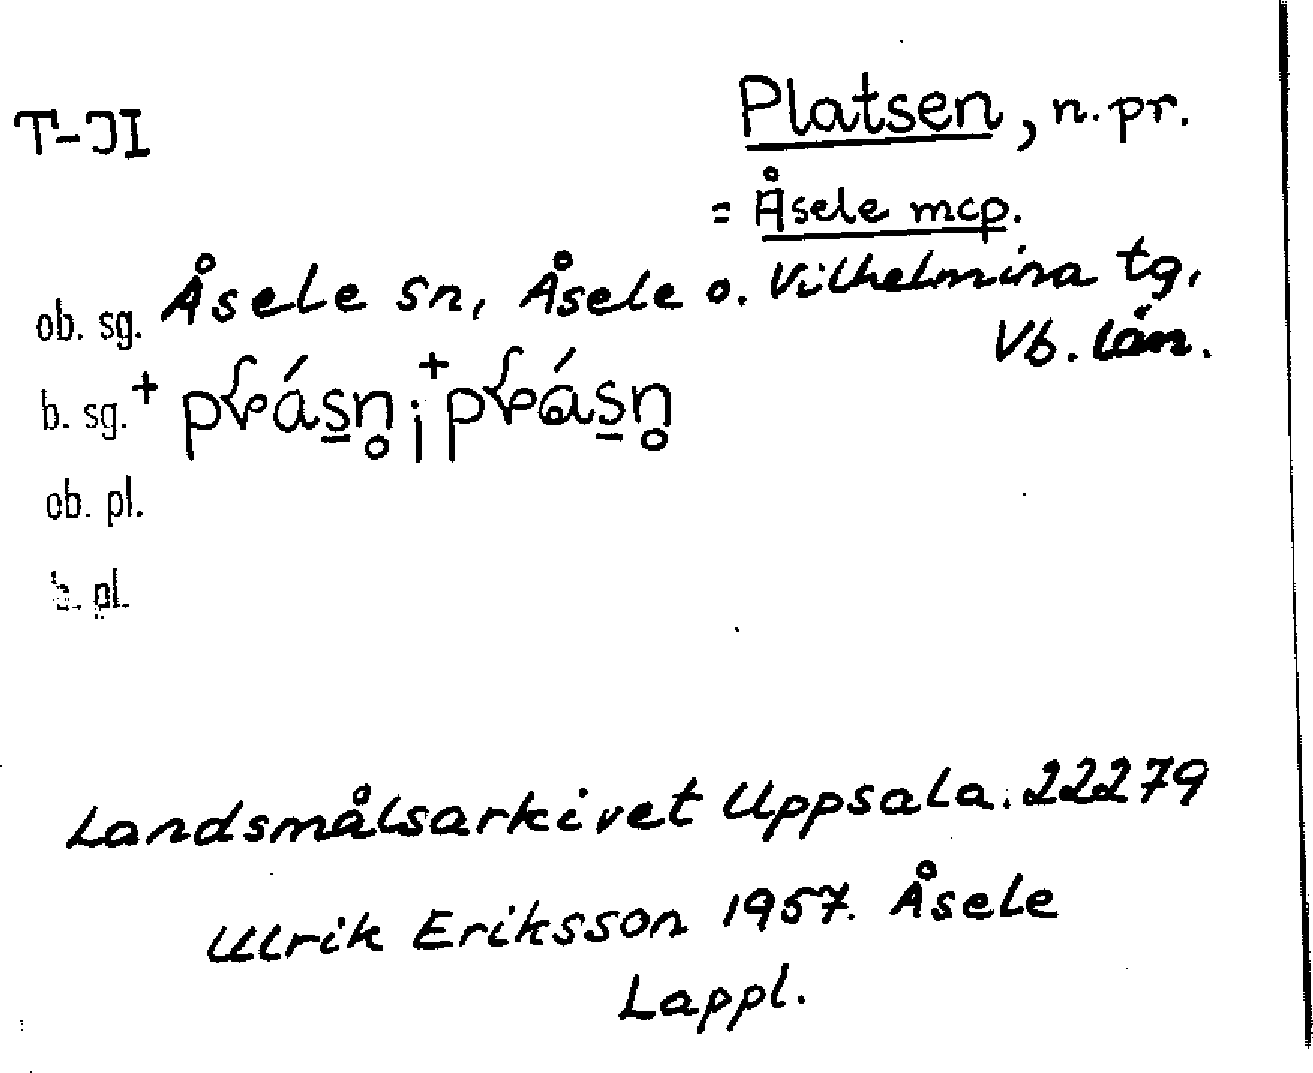 T-JI
Platsen, n.pr.
= Åsele mcp.
ob. sg. Åsele sn, Åsele o. Vilhelmina tg,
Vb. län.
b. sg.
ob. pl.
b. pl.
Landsmålsarkivet Uppsala. 22279
Ulrik Eriksson 1957. Åsele
Lappl.